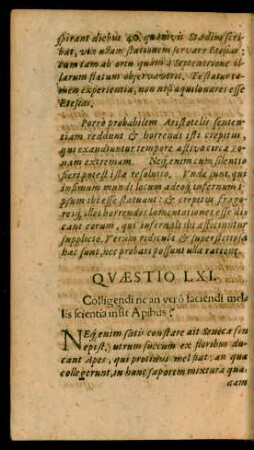 spirant diebus 40. quamvis Stadius scri-
bat, vix ullam stationem servare Etesias;
cum tam ab ortu quam à Septentrione il-
larum flatum observaverit. Testatur ta-
men experientia, non nisi aquilonares esse
Etesias.
Porrò probabilem Aristotelis senten-
tiam reddunt & horrendi isti crepitus,
qui exaudiuntur tempore æstivo circa Zo-
nam extremam. Neq; enim cum silentio
fieri potest ista resolutio. Unde sunt, qui
infimum mundi locum adeoq; infernum i-
psum ibi esse statuant: & crepitus frago-
resq; illos horrendos lamentationes esse di-
cant eorum, qui infernali ibi afficiuntur
supplicio. Verùm ridicula & superstitiosa
hæc sunt, nec probari possunt ulla ratione.
QVÆSTIO LXI.
Colligendi ne an verò faciendi mel-
lis scientia insit Apibus?
NEq; enim satis constare ait Seneca in
epist. utrum succum ex floribus du-
cant Apes, qui protinus mel fiat, an quæ
collegerunt, in hunc saporem mixtura qua-
dam